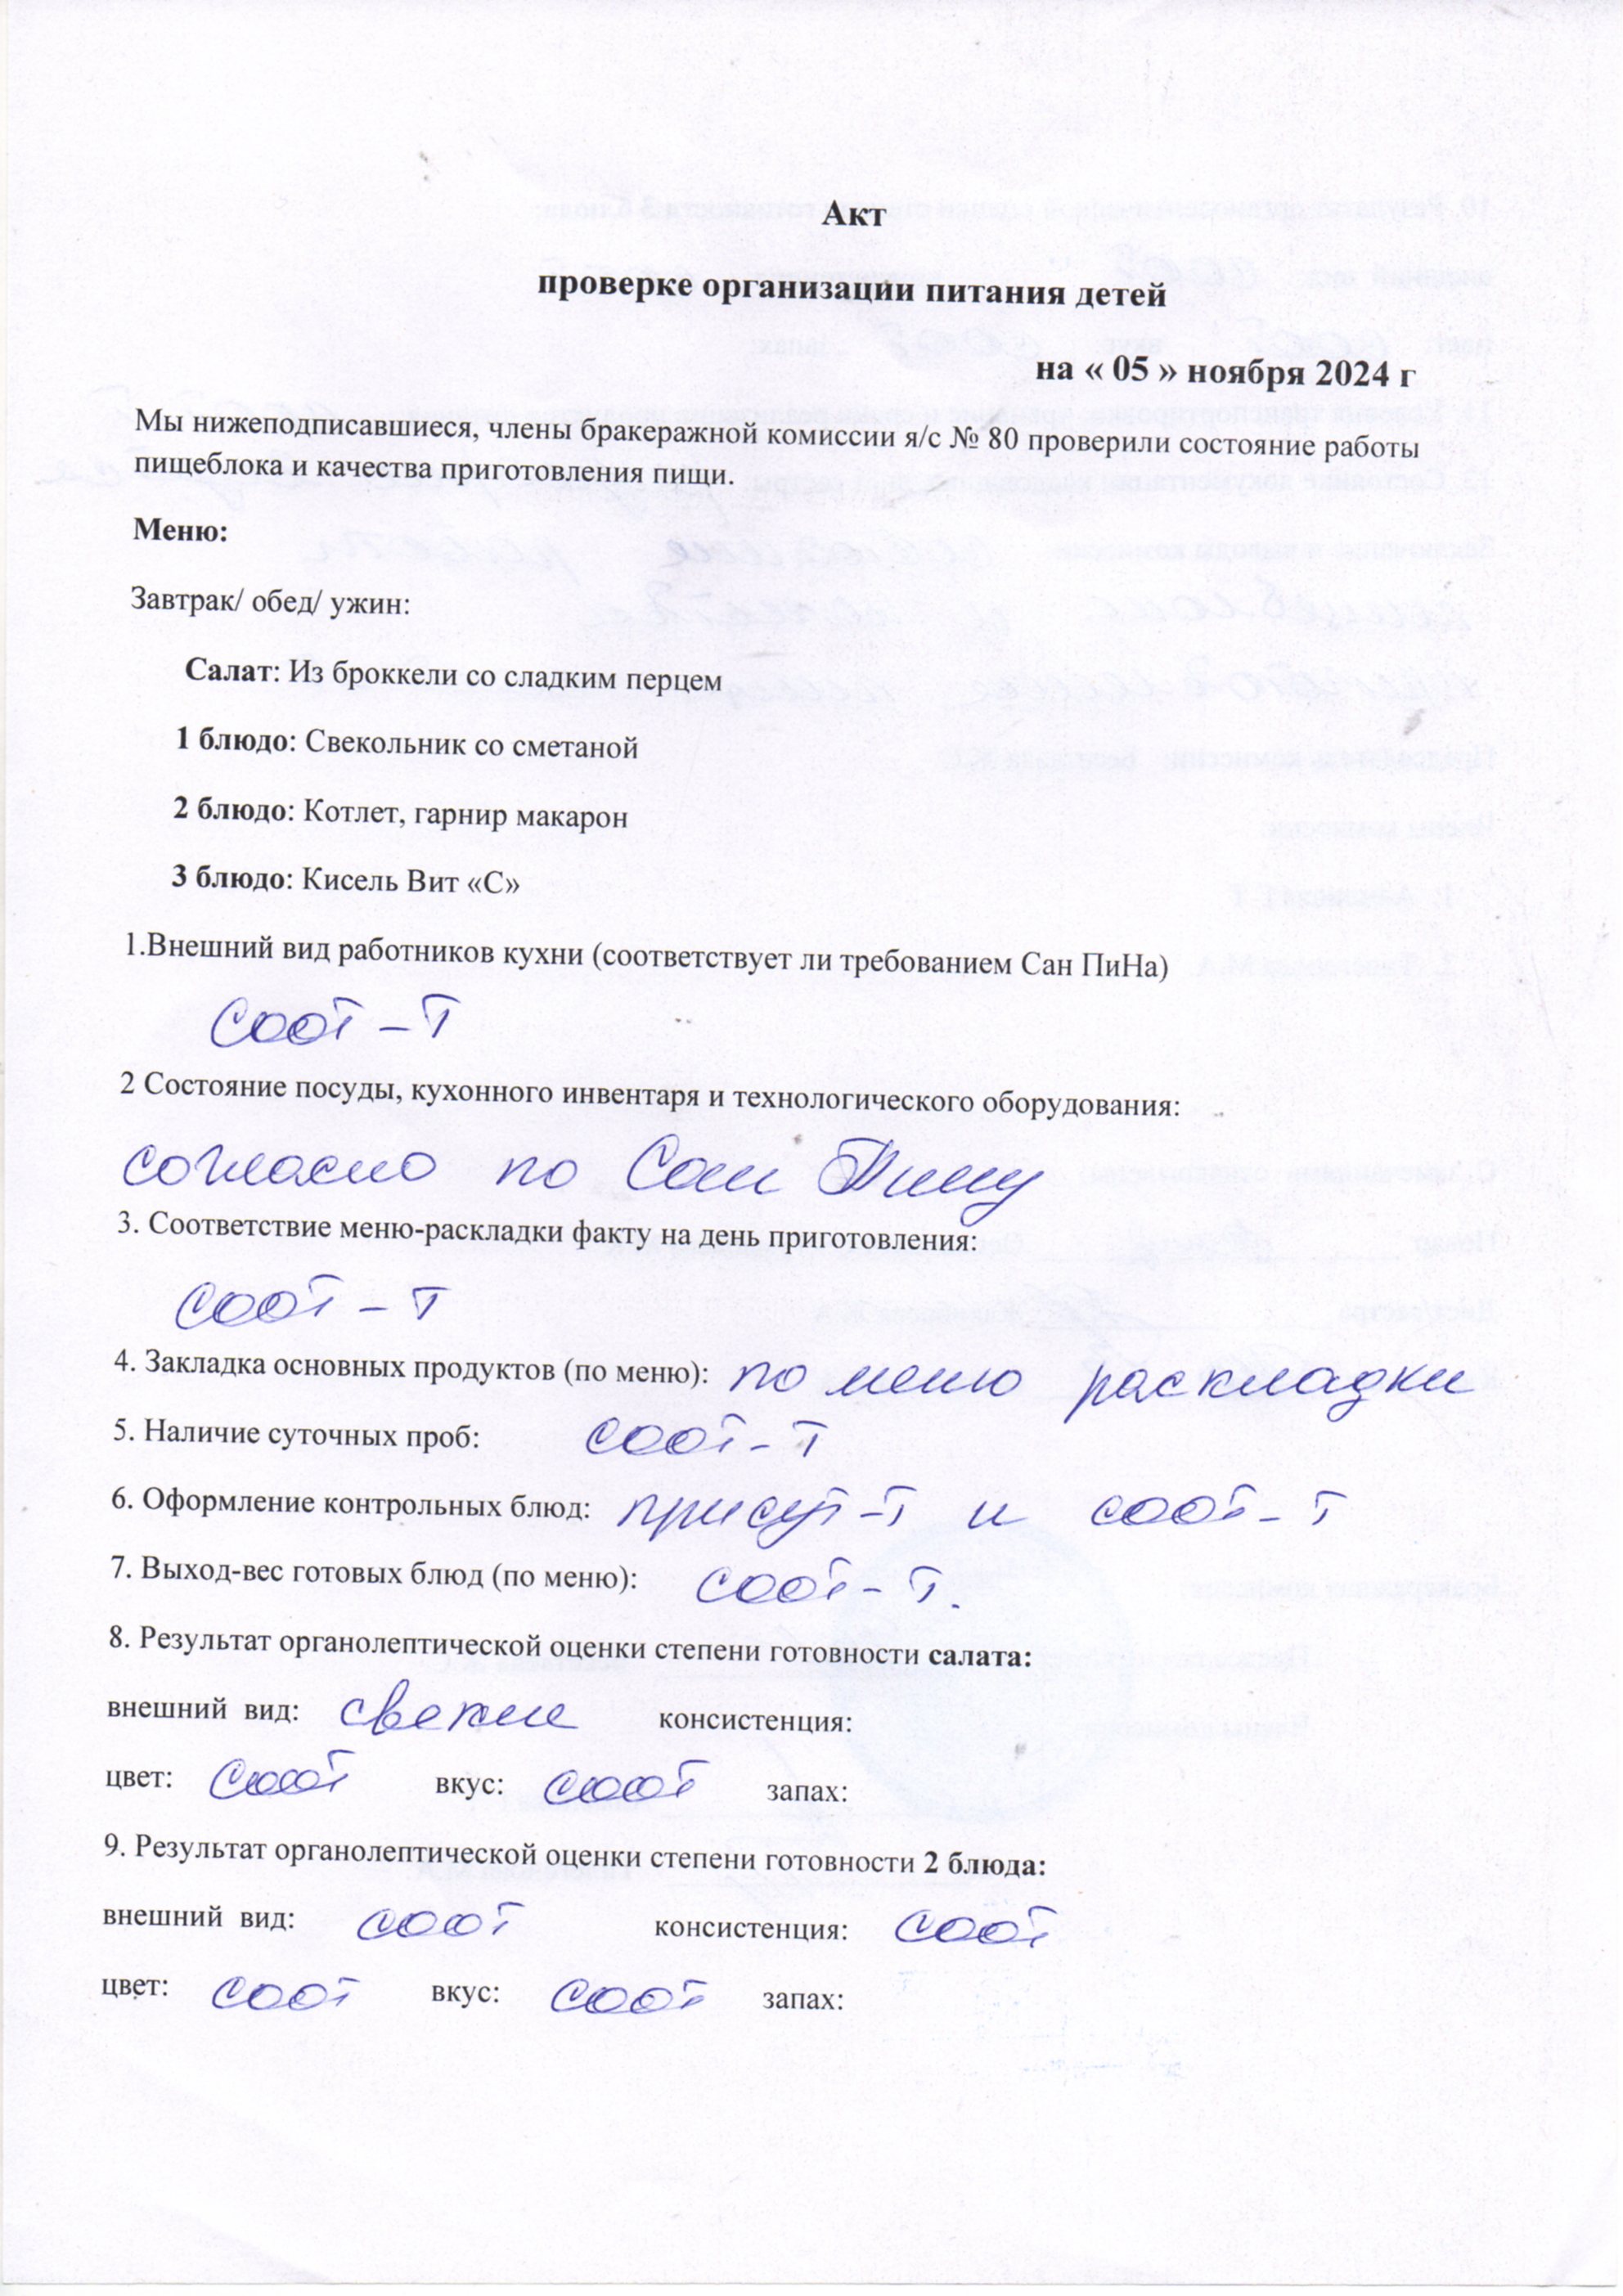 Акт
проверке организации питания детей
на « 05 » ноября 2024 г
Мы нижеподписавшиеся, члены бракеражной комиссии я/с № 80 проверили состояние работы
пищеблока и качества приготовления пищи.
Меню:
Завтрак/ обед/ ужин:
Салат: Из броккели со сладким перцем
1 блюдо: Свекольник со сметаной
2 блюдо: Котлет, гарнир макарон
3 блюдо: Кисель Вит «С»
1.Внешний вид работников кухни (соответствует ли требованием Сан ПиНа)
соот-т
2 Состояние посуды, кухонного инвентаря и технологического оборудования:
согласно по Сан Пину
3. Соответствие меню-раскладки факту на день приготовления:
соот-т
4. Закладка основных продуктов (по меню): по меню раскладки
5. Наличие суточных проб: соот-т
6. Оформление контрольных блюд: присут-т и соот-т
7. Выход-вес готовых блюд (по меню): соот-т.
8. Результат органолептической оценки степени готовности салата:
внешний вид: свежие консистенция:
цвет: соот вкус: соот запах:
9. Результат органолептической оценки степени готовности 2 блюда:
внешний вид: соот консистенция: соот
цвет: соот вкус: соот запах: